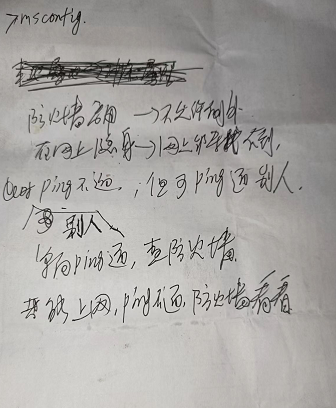 >msconfig.
防火墙启用 →不允许例外
在网上隐身→网上邻居找不到,
ping不通,;但可ping通别人.
别人
单向ping通,查防火墙
若能上网,ping不通,防火墙看看